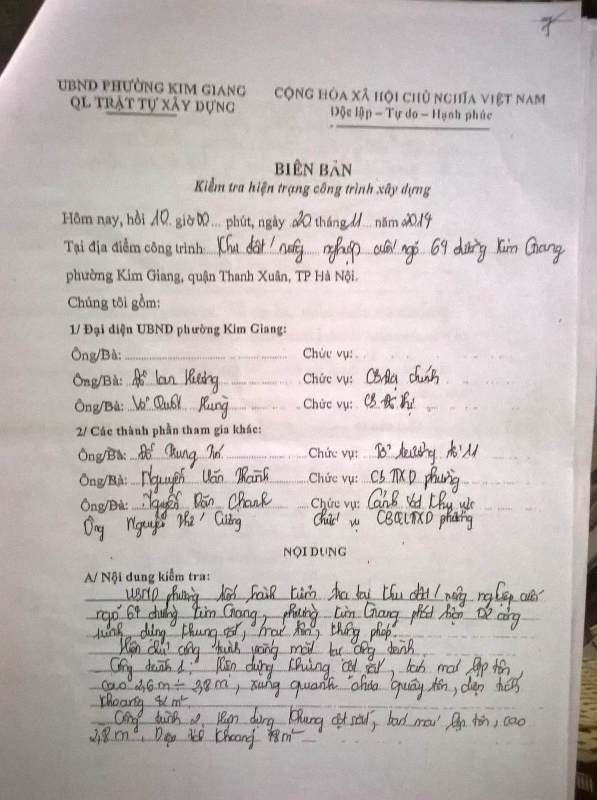 UBND PHƯỜNG KIM GIANG
QL TRẬT TỰ XÂY DỰNG
CỘNG HÒA XÃ HỘI CHỦ NGHĨA VIỆT NAM
Độc lập – Tự do – Hạnh phúc
BIÊN BẢN
Kiểm tra hiện trạng công trình xây dựng
Hôm nay, hồi 10 giờ 00 phút, ngày 20 tháng 11 năm 2014
Tại địa điểm công trình Khu đất nông nghiệp cuối ngõ 64 đường Kim Giang
phường Kim Giang, quận Thanh Xuân, TP Hà Nội.
Chúng tôi gồm:
1/ Đại diện UBND phường Kim Giang:
Ông/Bà: Chức vụ:
Ông/Bà: Đỗ Lan Hương Chức vụ: CB Địa chính
Ông/Bà: Võ Quốc Hùng Chức vụ: CB Đô thị
2/ Các thành phần tham gia khác:
Ông/Bà: Đỗ Trung Chức vụ: Tổ trưởng tổ 11
Ông/Bà: Nguyễn Văn Thành Chức vụ: Cb TTXD phường
Ông/Bà: Nguyễn Chức vụ: Cảnh sát khu vực
Ông Nguyễn Thế Cường Chức vụ CBQLTTXD phường
NỘI DUNG
A/ Nội dung kiểm tra:
UBND phường tiến hành kiểm tra tại khu đất nông nghiệp cuối
ngõ 64 đường Kim Giang, phường Kim Giang phát hiện 02 công
trình dựng khung sắt, mái tôn, không phép.
công trình vắng mặt tại công trình
Công trình 1: Hiện dựng khung cột sắt, mái lợp tôn,
cao 2,6m ÷ 2,8m, xung quanh chưa quây tôn, diện tích
khoảng m²
Công trình 2, Hiện dựng khung cột sắt, mái lợp tôn, cao
2,8m, khoảng 78m²